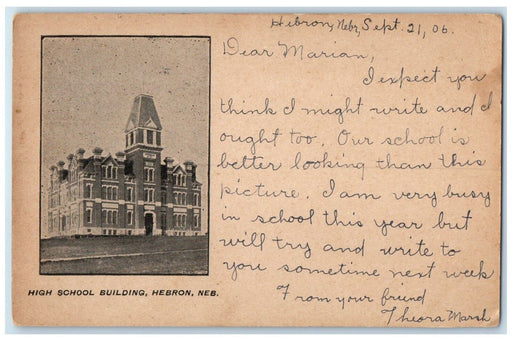 Hebron, Nebr, Sept. 21, 06.
Dear Marian,
I expect you
think I might write and I
ought too. Our school is
better looking than this
picture. I am very busy
in school this year but
will try and write to
you sometime next week
From your friend
Theora Marsh
HIGH SCHOOL BUILDING, HEBRON, NEB.